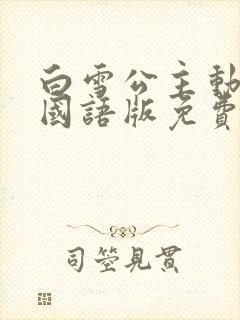 白雪公主動
國語版免費
司箜見貫